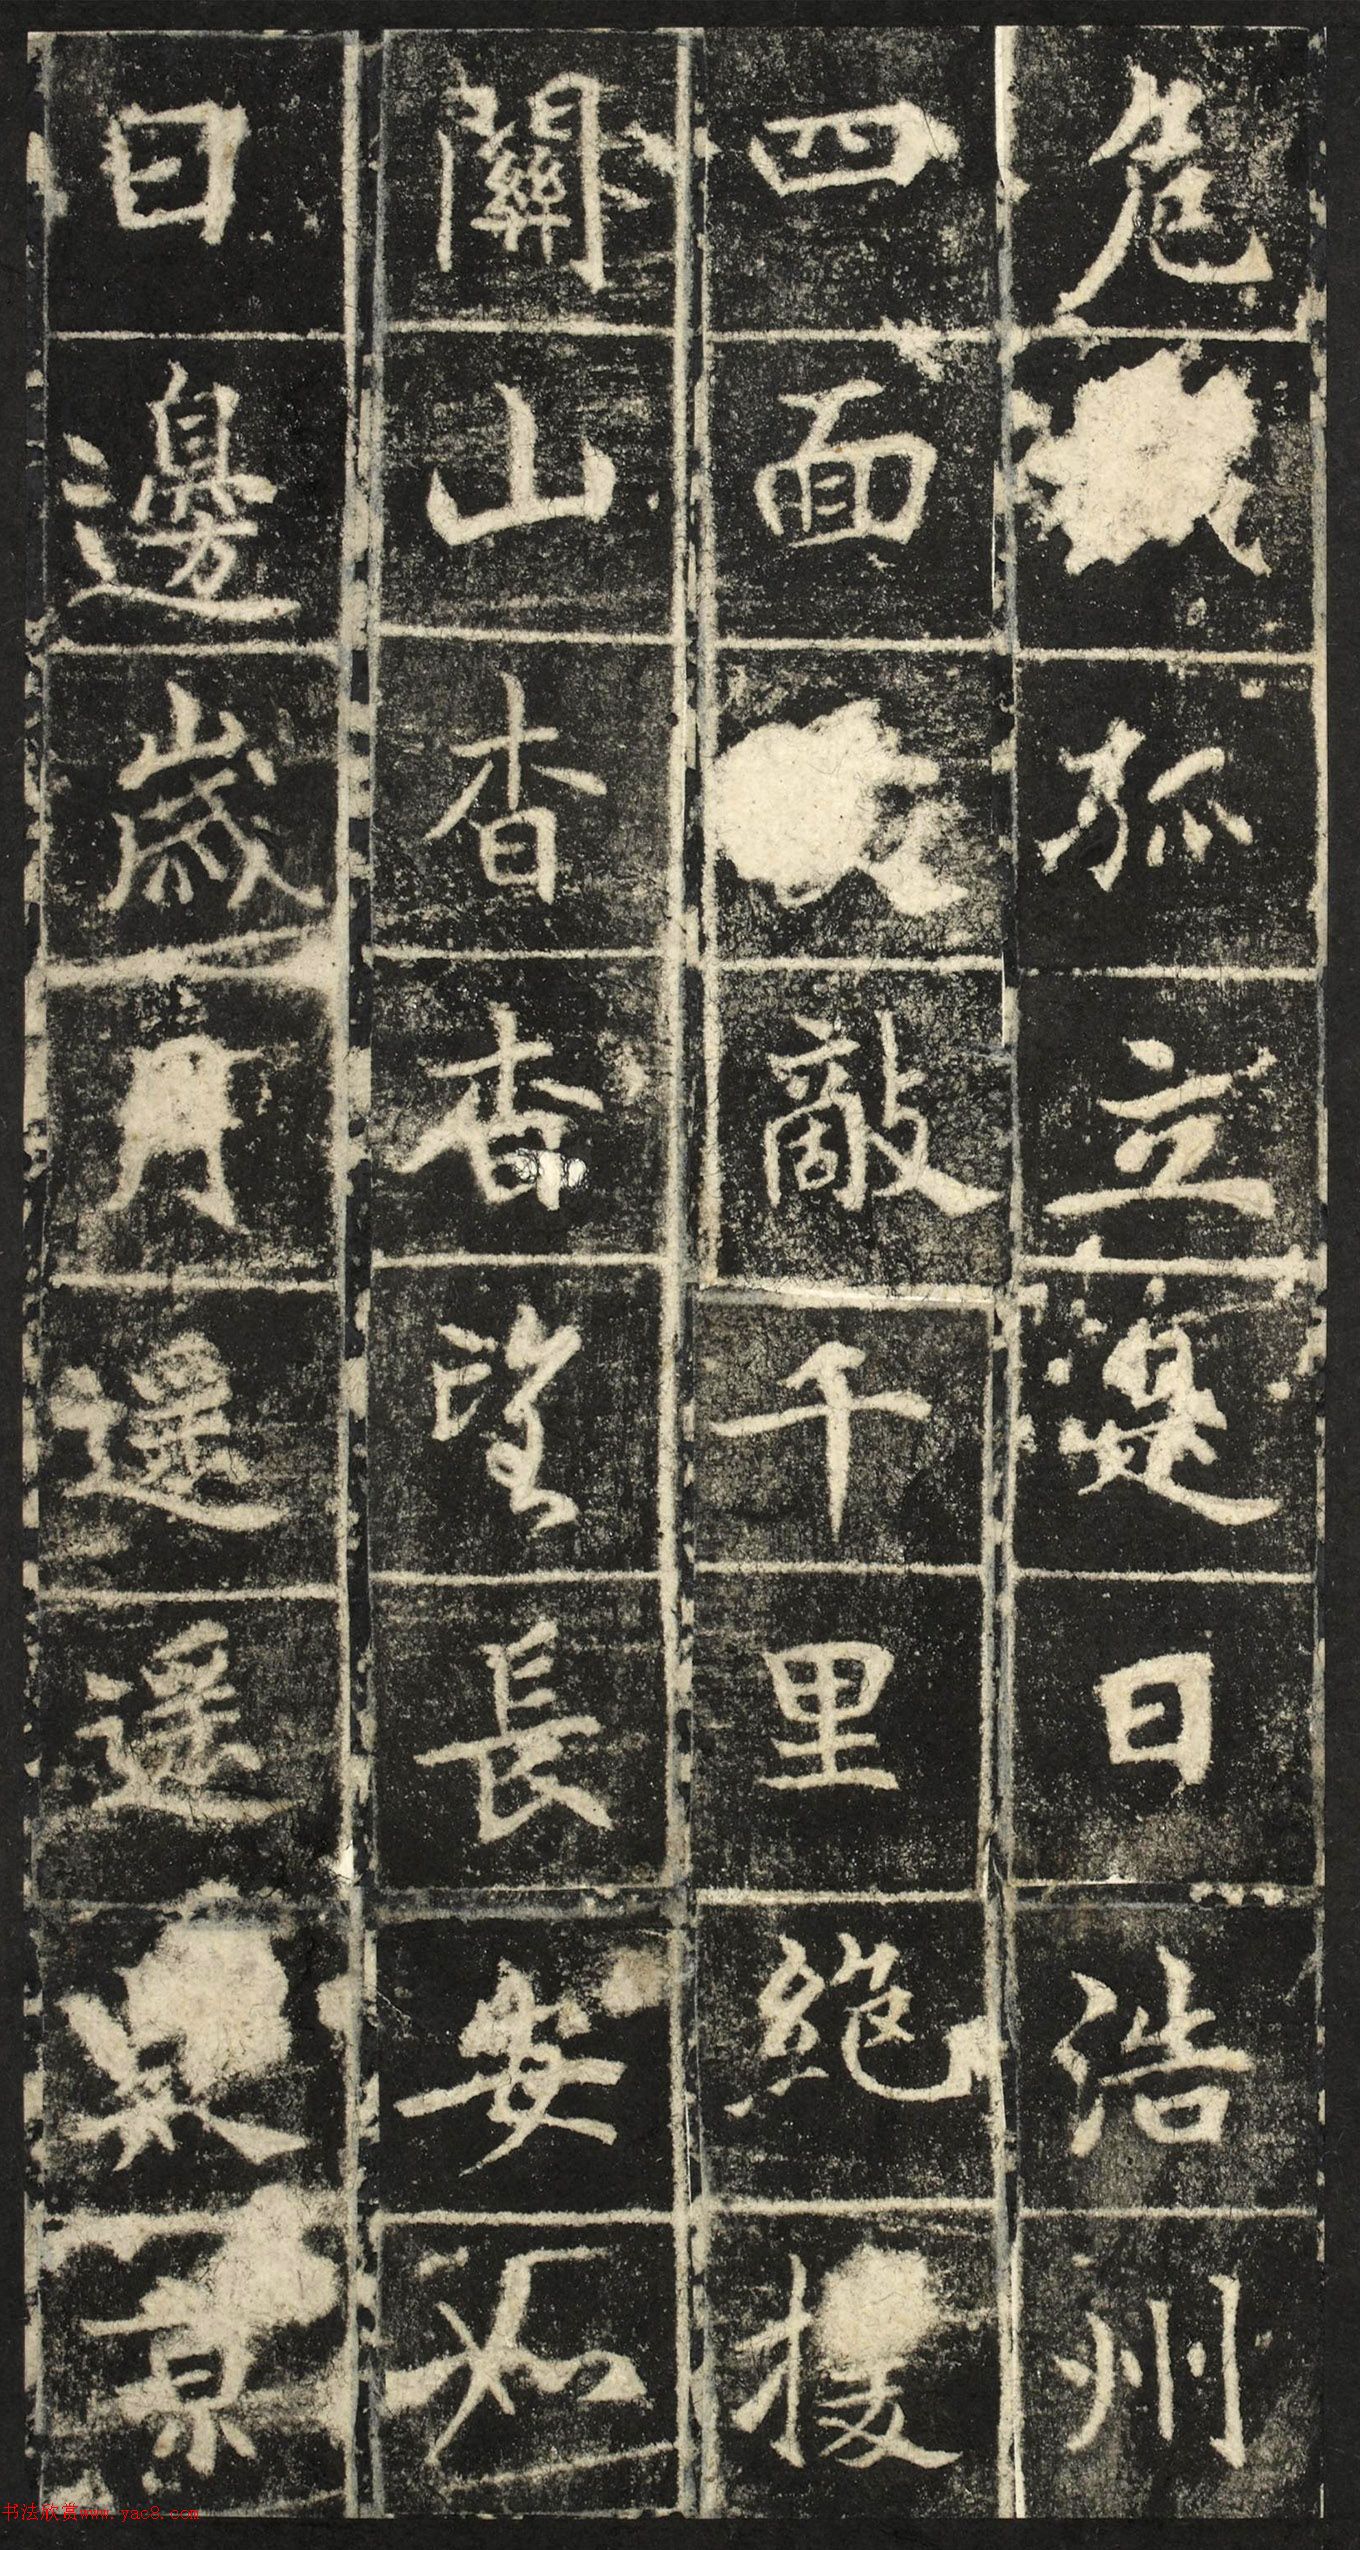 危孤立日浩州
四面敵千里絕援
關山杳杳望長安如
日邊歲月遙遙景
书法欣赏www.yac8.com